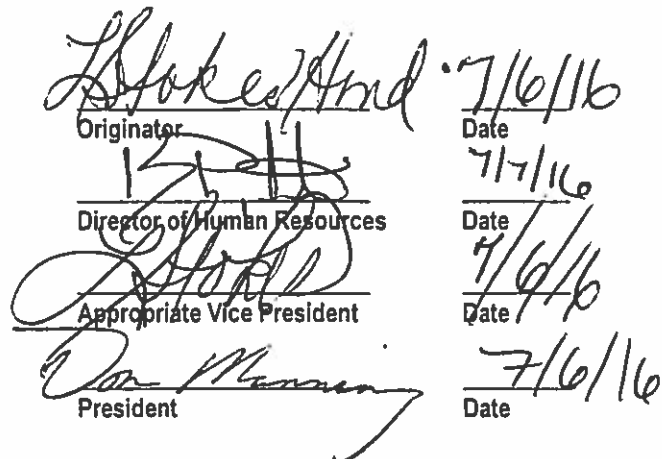 LStokes/Hmd 7/6/16
Originator Date
7/7/16
Director of Human Resources Date
LStokes 7/6/16
Appropriate Vice President Date
Don Mannin 7/6/16
President Date